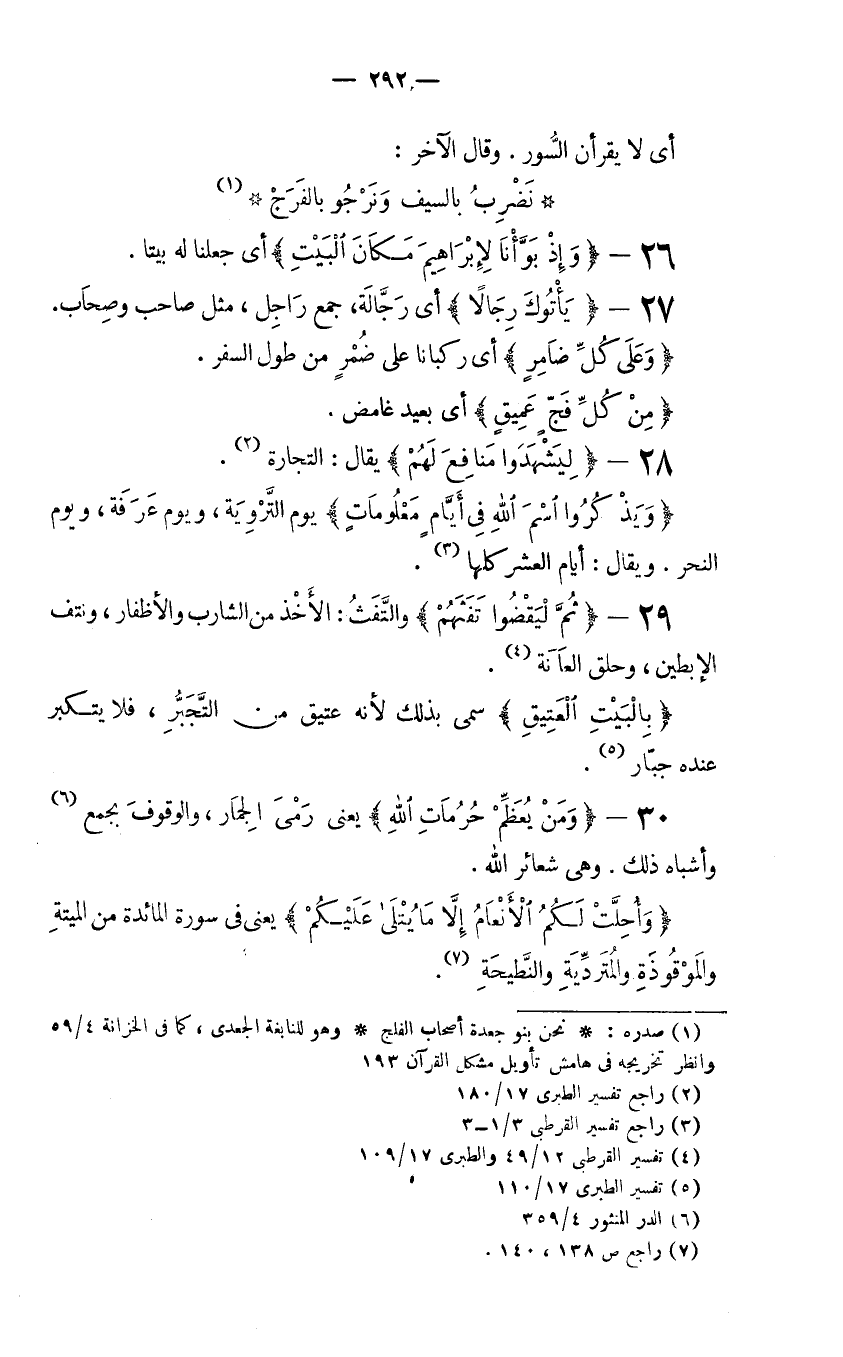 — ٢٩٢ —
أى لا يقرأن السُّور . وقال الآخر :
* نَضْرِبُ بالسيف وَنَرْجُو بالفَرَجْ * (١)
٢٦ — ﴿ وَإِذْ بَوَّأْنَا لِإِبْرَاهِيمَ مَكَانَ ٱلْبَيْتِ ﴾ أى جعلنا له بيتا .
٢٧ — ﴿ يَأْتُوكَ رِجَالًا ﴾ أى رَجَّالَة، جمع رَاجِل ، مثل صاحب وصِحاَب.
﴿ وَعَلَى كُلِّ ضاَمِرٍ ﴾ أى ركبانا على ضُمْرٍ من طول السفر .
﴿ مِنْ كُلِّ فَجٍّ عَمِيقٍ ﴾ أى بعيد غامض .
٢٨ — ﴿ لِيَشْهَدَوا مَنَافِعَ لَهُمْ ﴾ يقال : التجارة (٢) .
﴿ وَيَذْكُرُوا ٱسْمَ ٱللهِ فِى أَيَّامٍ مَعْلُومَاتٍ ﴾ يوم التَّرْوِيَة ، ويوم عَرَفَة ، ويوم
النحر . ويقال : أيام العشر كلها (٣) .
٢٩ — ﴿ ثُمَّ لْيَقْضُوا تَفَثَهُمْ ﴾ والتَّفَثُ : الأَخْذ من الشارب والأظفار ، ونتف
الإبطين ، وحلق العاَنَة (٤) .
﴿ بِالْبَيْتِ ٱلْعَتِيقِ ﴾ سمى بذلك لأنه عتيق من التَّجَبُّرِ ، فلا يتكبر
عنده جبّار (٥) .
٣٠ — ﴿ وَمَنْ يُعَظِّمْ حُرُمَاتِ ٱللهِ ﴾ يعنى رَمْىَ الِجمَار ، والوقوفَ بجمع (٦)
وأشباه ذلك . وهى شعائر الله .
﴿ وَأُحِلَّتْ لَكُمُ ٱلْأَنْعَامُ إِلَّا مَا يُتْلَىٰ عَلَيْكُمْ ﴾ يعنى فى سورة المائدة من الميتةِ
والَموْقُوذَةِ والُمتَردِّيَةِ والنَّطِيحَةِ (٧).
(١) صدره : * نحن بنو جعدة أصحاب الفلج * وهو للنابغة الجعدى ، كما فى الخزانة ٥٩/٤
وانظر تخريجه فى هامش تأويل مشكل القرآن ١٩٣
(٢) راجع تفسير الطبرى ١٨٠/١٧
(٣) راجع تفسير القرطبى ١/٣–٣
(٤) تفسير القرطبى ٤٩/١٢ والطبرى ١٠٩/١٧
(٥) تفسير الطبرى ١١٠/١٧
(٦) الدر المنثور ٣٥٩/٤
(٧) راجع ص ١٣٨ ، ١٤٠ .